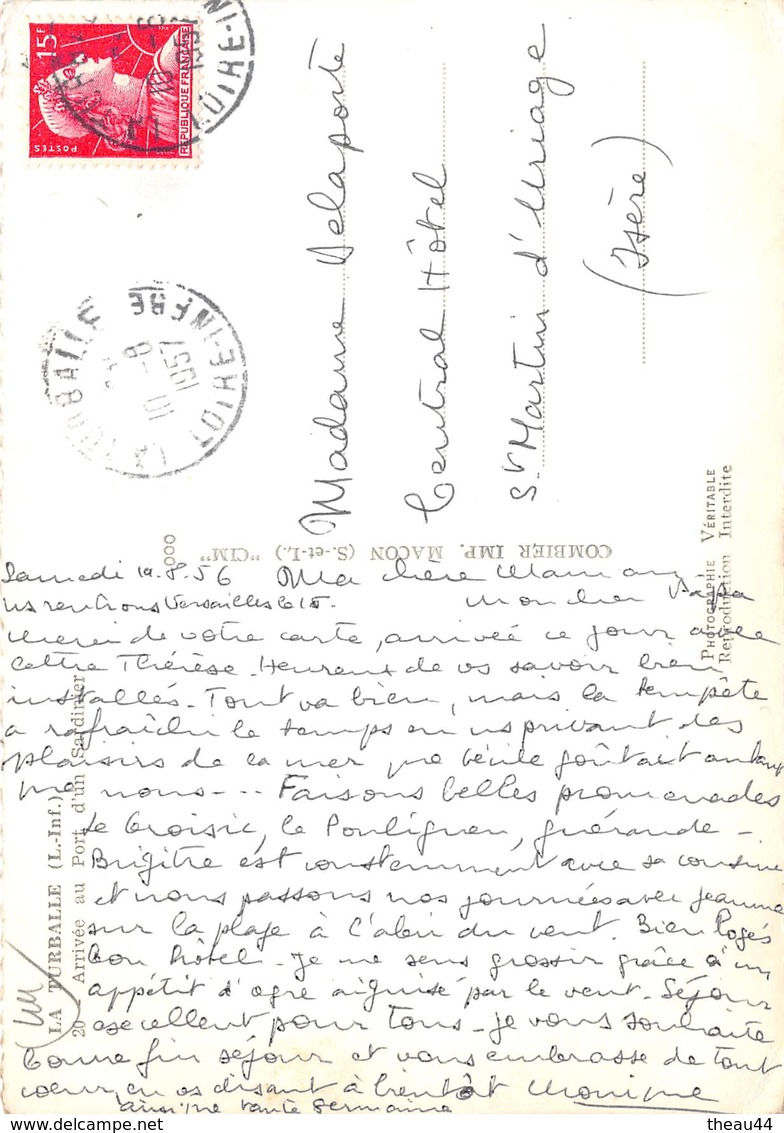 15F
POSTES
REPUBLIQUE FRANÇAISE
LOIRE-IN
LA TURBALLE
LOIRE-INFRE
10
9-8
1957
Madame Delaporte
Central Hôtel
St Martin d'Uriage
(Isère)
PHOTOGRAPHIE VÉRITABLE
Reproduction Interdite
COMBIER IMP. MACON (S.-et-L.) "CIM"
LA TURBALLE (L.-Inf.)
20 Arrivée au Port d'un Sardinier
Samedi 10.8.56 Ma chère Maman
ns rentrons Versailles le 15. mon cher Papa
merci de votre carte, arrivée ce jour avec
Thérèse. Heureux de vs savoir bien
installés. Tout va bien, mais la tempête
a rafraîchi le temps en ns privant des
plaisirs de la mer que Cécile goûtait autant
que nous--.. Faisons belles promenades
Le Croisic, le Pouliguen, Guérande -
Brigitte est constamment avec sa cousine
et nous passons nos journées avec Jeanne
sur la plage à l'abri du vent. Bien logés
bon hôtel. Je me sens grossir grâce à un
appétit d'ogre aiguisé par le vent. Séjour
excellent pour tous. Je vous souhaite
bonne fin séjour et vous embrasse de tout
coeur en vs disant à bientôt Monique
ainsi que tante Germaine
theau44